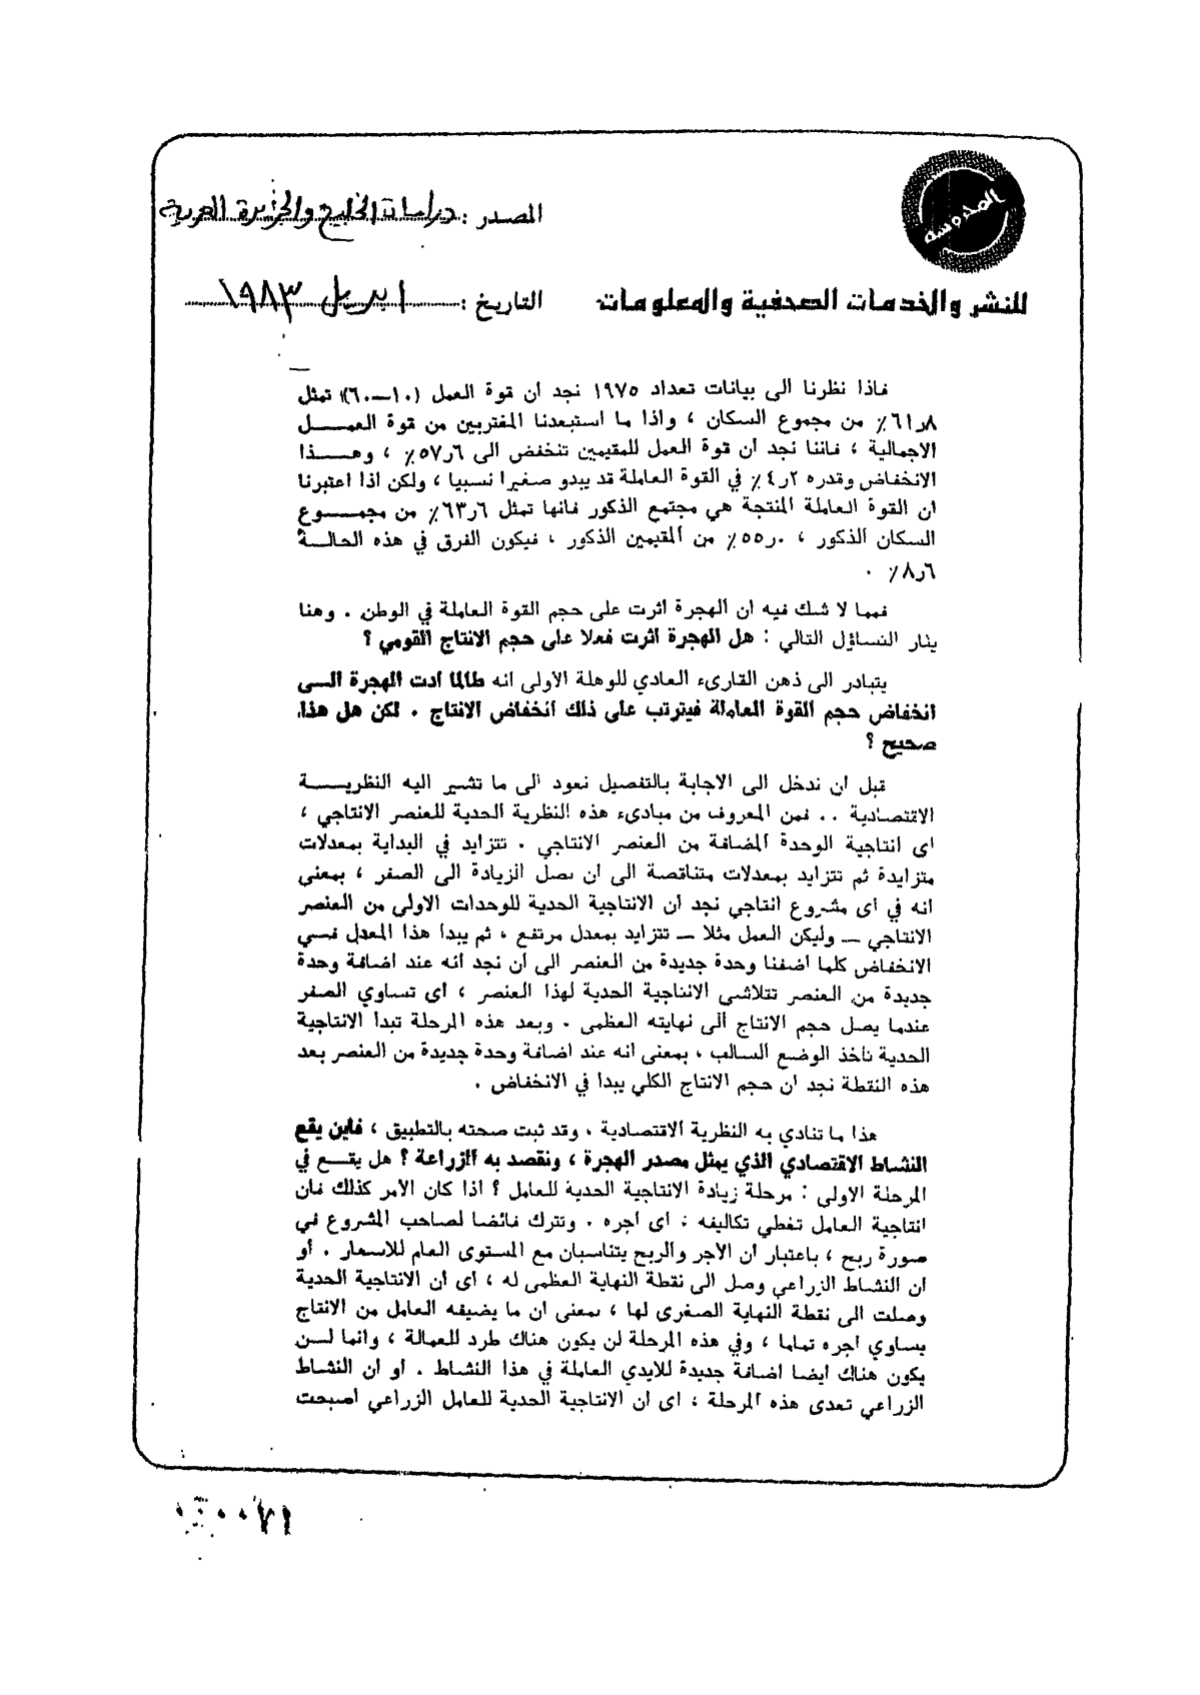 المصدر : دراسات الخليج والجزيرة العربية
التاريخ : ابريل ١٩٨٣
للنشر والخدمات الصحفية والمعلومات
فاذا نظرنا الى بيانات تعداد ١٩٧٥ نجد ان قوة العمل (١٠—٦٠) تمثل
٦١٫٨٪ من مجموع السكان ، واذا ما استبعدنا المغتربين من قوة العمــــل
الاجمالية ، فاننا نجد ان قوة العمل للمقيمين تنخفض الى ٥٧٫٦٪ ، وهـــذا
الانخفاض وقدره ٤٫٢٪ في القوة العاملة قد يبدو صغيرا نسبيا ، ولكن اذا اعتبرنا
ان القوة العاملة المنتجة هي مجتمع الذكور فانها تمثل ٦٣٫٦٪ من مجمـــوع
السكان الذكور ، ٥٥٫٠٪ من المقيمين الذكور ، فيكون الفرق في هذه الحالــة
٨٫٦٪ .
فمما لا شك فيه ان الهجرة اثرت على حجم القوة العاملة في الوطن . وهنا
يثار التساؤل التالي : هل الهجرة اثرت فعلا على حجم الانتاج القومي ؟
يتبادر الى ذهن القارىء العادي للوهلة الاولى انه طالما ادت الهجرة الـــى
انخفاض حجم القوة العاملة فيترتب على ذلك انخفاض الانتاج . لكن هل هذا
صحيح ؟
قبل ان ندخل الى الاجابة بالتفصيل نعود الى ما تشير اليه النظريـــــة
الاقتصادية .. فمن المعروف من مبادىء هذه النظرية الحدية للعنصر الانتاجي ،
اى انتاجية الوحدة المضافة من العنصر الانتاجي . تتزايد في البداية بمعدلات
متزايدة ثم تتزايد بمعدلات متناقصة الى ان تصل الزيادة الى الصفر ، بمعنى
انه في اى مشروع انتاجي نجد ان الانتاجية الحدية للوحدات الاولى من العنصر
الانتاجي — وليكن العمل مثلا — تتزايد بمعدل مرتفع ، ثم يبدا هذا المعدل فـــي
الانخفاض كلما اضفنا وحدة جديدة من العنصر الى ان نجد انه عند اضافة وحدة
جديدة من العنصر تتلاشى الانتاجية الحدية لهذا العنصر ، اى تساوي الصفر
عندما يصل حجم الانتاج الى نهايته العظمى . وبعد هذه المرحلة تبدا الانتاجية
الحدية تاخذ الوضع السالب ، بمعنى انه عند اضافة وحدة جديدة من العنصر بعد
هذه النقطة نجد ان حجم الانتاج الكلي يبدا في الانخفاض .
هذا ما تنادي به النظرية الاقتصادية ، وقد ثبت صحته بالتطبيق ، فاين يقع
النشاط الاقتصادي الذي يمثل مصدر الهجرة ، ونقصد به الزراعة ؟ هل يقـــع في
المرحلة الاولى : مرحلة زيادة الانتاجية الحدية للعامل ؟ اذا كان الامر كذلك فان
انتاجية العامل تغطي تكاليفه : اى اجره ، وتترك فائضا لصاحب المشروع في
صورة ربح ، باعتبار ان الاجر والربح يتناسبان مع المستوى العام للاسعار . أو
ان النشاط الزراعي وصل الى نقطة النهاية العظمى له ، اى ان الانتاجية الحدية
وصلت الى نقطة النهاية الصغرى لها ، بمعنى ان ما يضيفه العامل من الانتاج
يساوي اجره تماما ، وفي هذه المرحلة لن يكون هناك طرد للعمالة ، وانما لـــن
يكون هناك ايضا اضافة جديدة للايدي العاملة في هذا النشاط . او ان النشاط
الزراعي تعدى هذه المرحلة ، اى ان الانتاجية الحدية للعامل الزراعي اصبحت